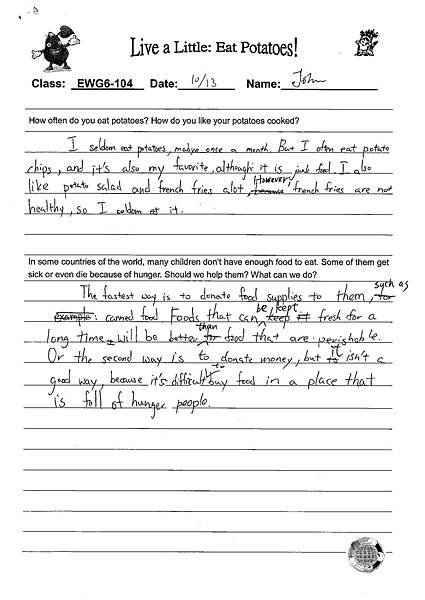 Live a Little: Eat Potatoes!
Class: EWG6-104 Date: 10/13 Name: John
How often do you eat potatoes? How do you like your potatoes cooked?
I seldom eat potatoes, madye once a month. But I often eat potato
chips, and it's also my favorite, although it is junk food. I also
like potato salad and french fries alot, However, french fries are not
healthy, so I seldom et it.
In some countries of the world, many children don't have enough food to eat. Some of them get
sick or even die because of hunger. Should we help them? What can we do?
The fastest way is to donate food supplies to them, such as
canned food. Foods that can be kept fresh for a
long time will be better than food that are perishable.
Or the second way is to donate money, but it isn't a
good way, because it's difficult to buy food in a place that
is full of hunger people.